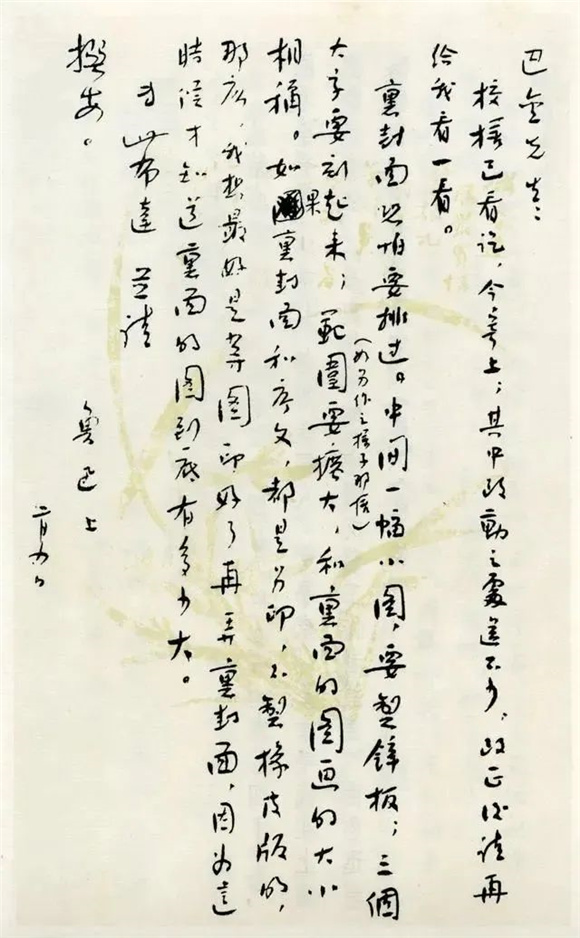 巴金先生：
校樣已看訖，今寄上；其中改動之處還不少，改正後請再
給我看一看。
裏封面恐怕要排過。中間一幅小圖，要製鋅板；三個
（如另作之樣子那樣）
大字要刻起來；範圍要擴大，和裏面的圖畫的大小
相稱。如果裏封面和序文，都是另印，不製橡皮版的，
那麼，我想最好是等圖印好了再弄裏封面，因為這
時候才知道裏面的圖到底有多少大。
專此布達 並請
撰安。
魯迅上
二月四日